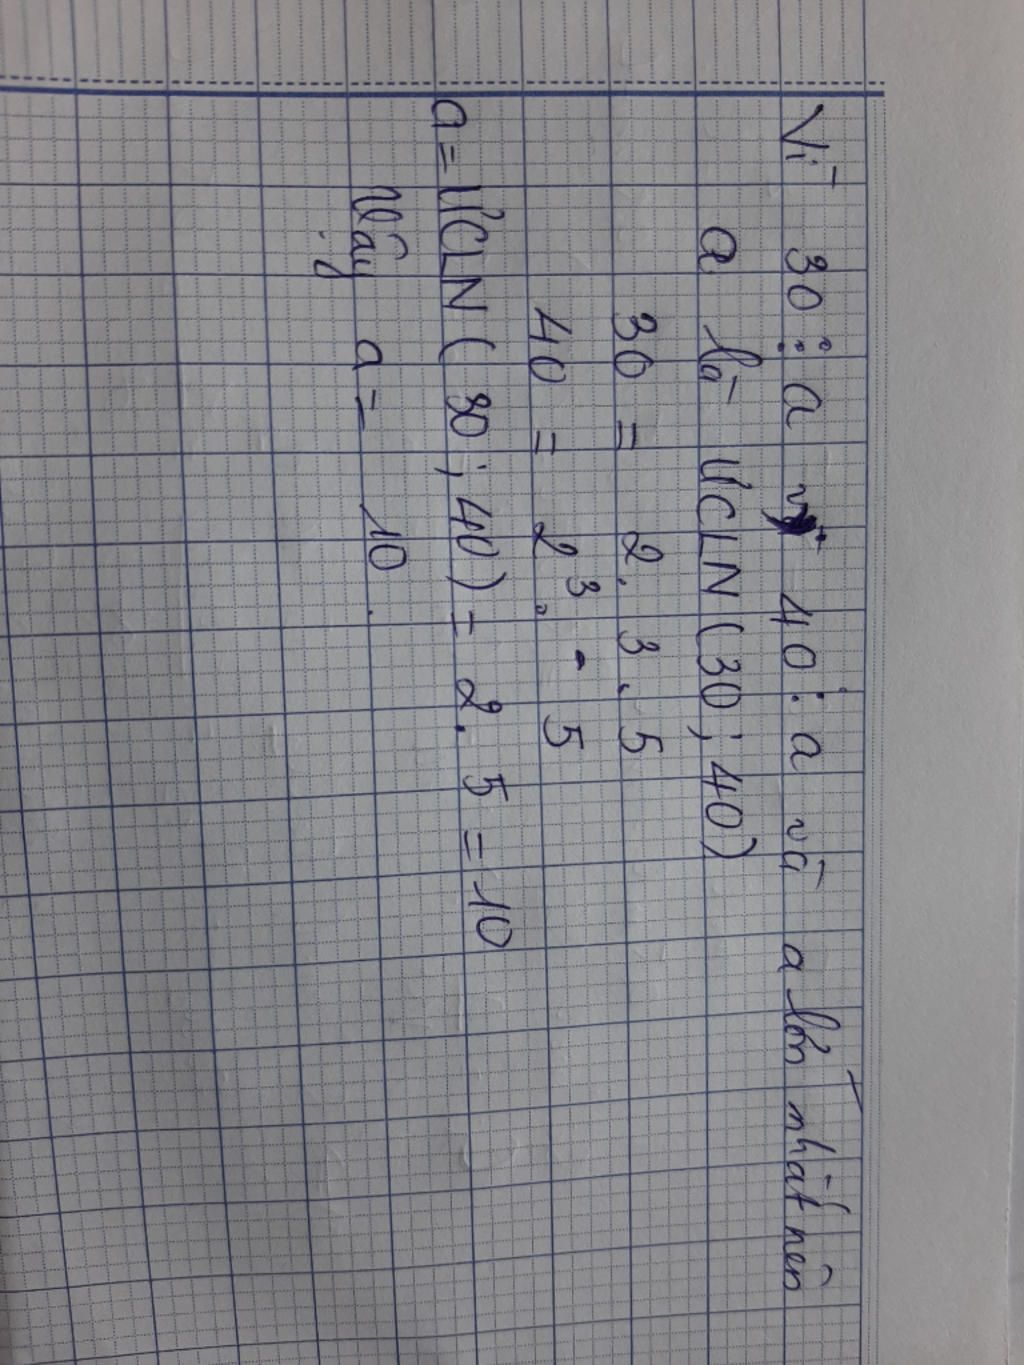 Vì 30 ⋮ a và 40 ⋮ a và a lớn nhất nên
a là ƯCLN (30 ; 40)
30 = 2 . 3 . 5
40 = 2³ . 5
a = ƯCLN ( 30 ; 40) = 2 . 5 = 10
Vậy a = 10 .